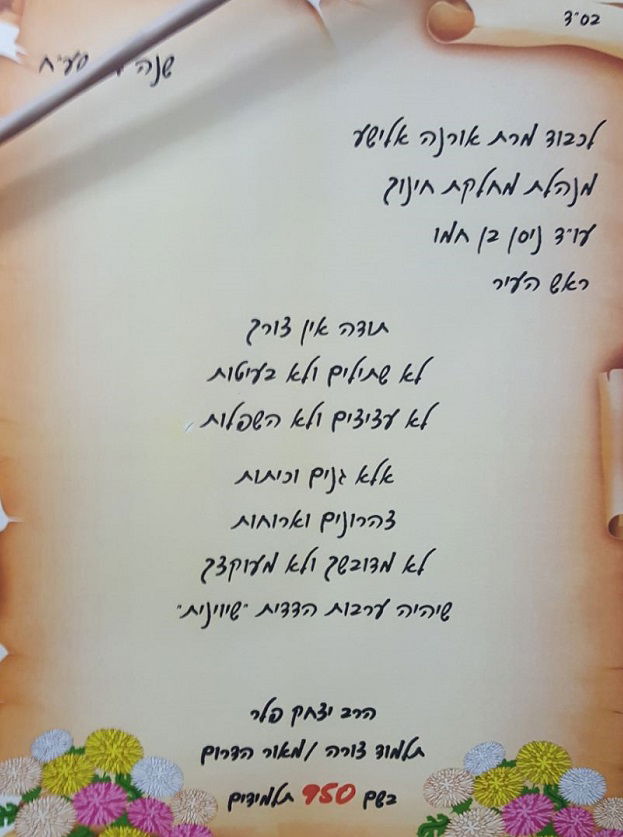 בס"ד
שנה
לכבוד מרת אורנה אלישע
מנהלת מחלקת חינוך
עו"ד ניסן בן חמו
ראש העיר
תודה אין צורך
לא שתילים ולא בעיטות
לא עציצים ולא השפלות
אלא גנים וכיתות
צהרונים וארוחות
לא מדובשך ולא מעוקצך
שיהיה ערבות הדדית "שיווינית"
הרב יצחק פלר
תלמוד תורה /מאור הדרום
בשם 950 תלמידים